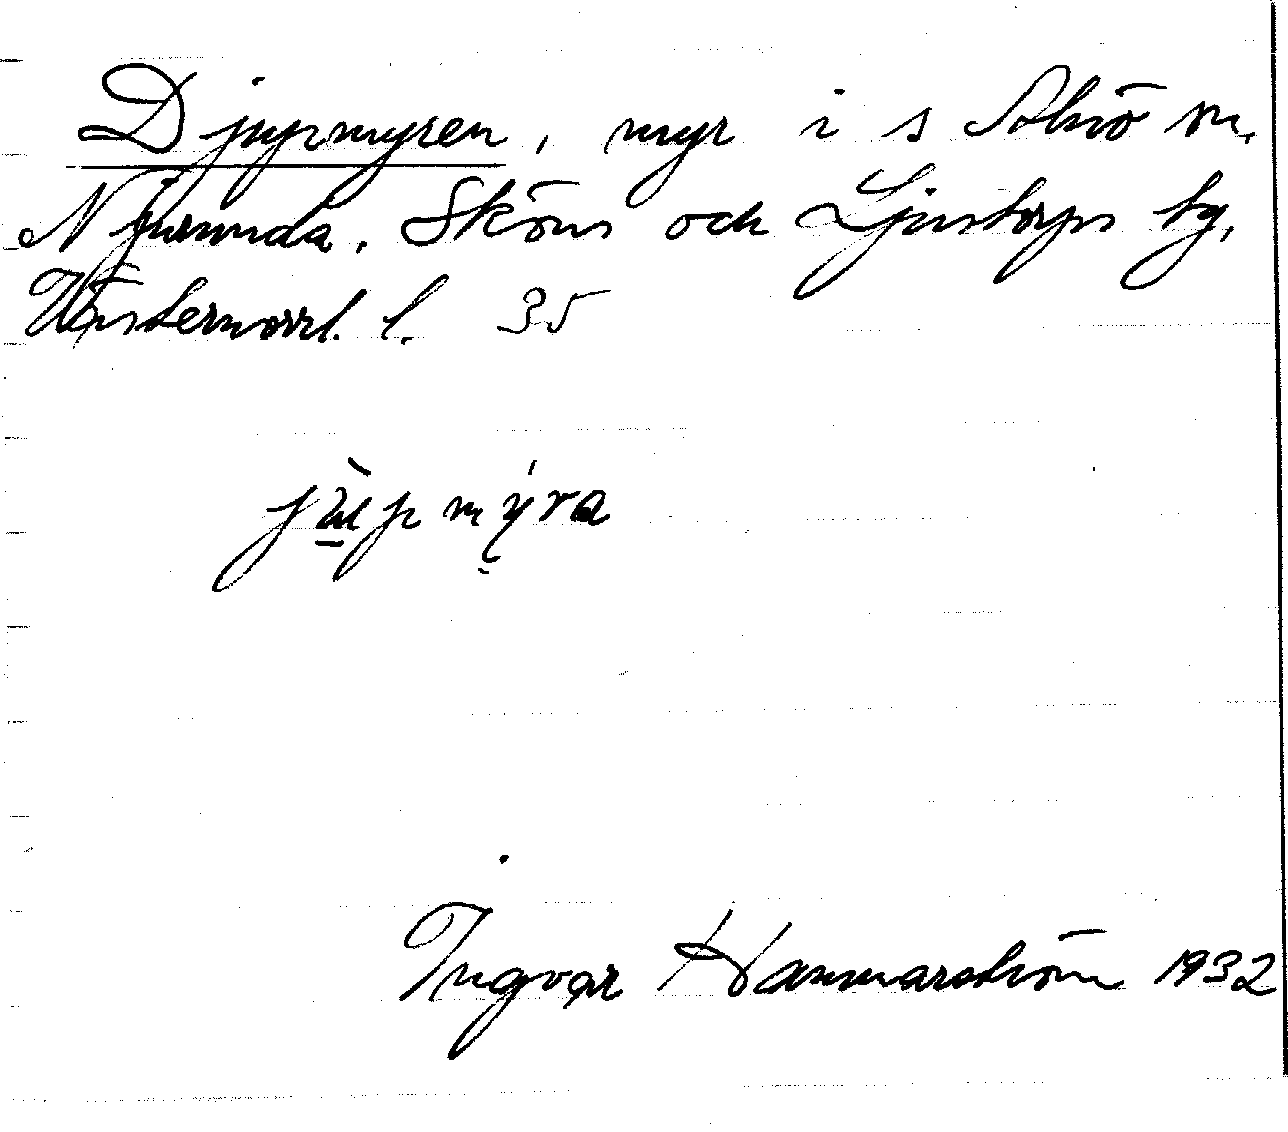 Djupmyren, myr i s Alnö sn,
Njurunda, Sköns och Ljustorps tg,
Västernorrl. l. 35
jùpmýra
Ingvar Hammarström 1932